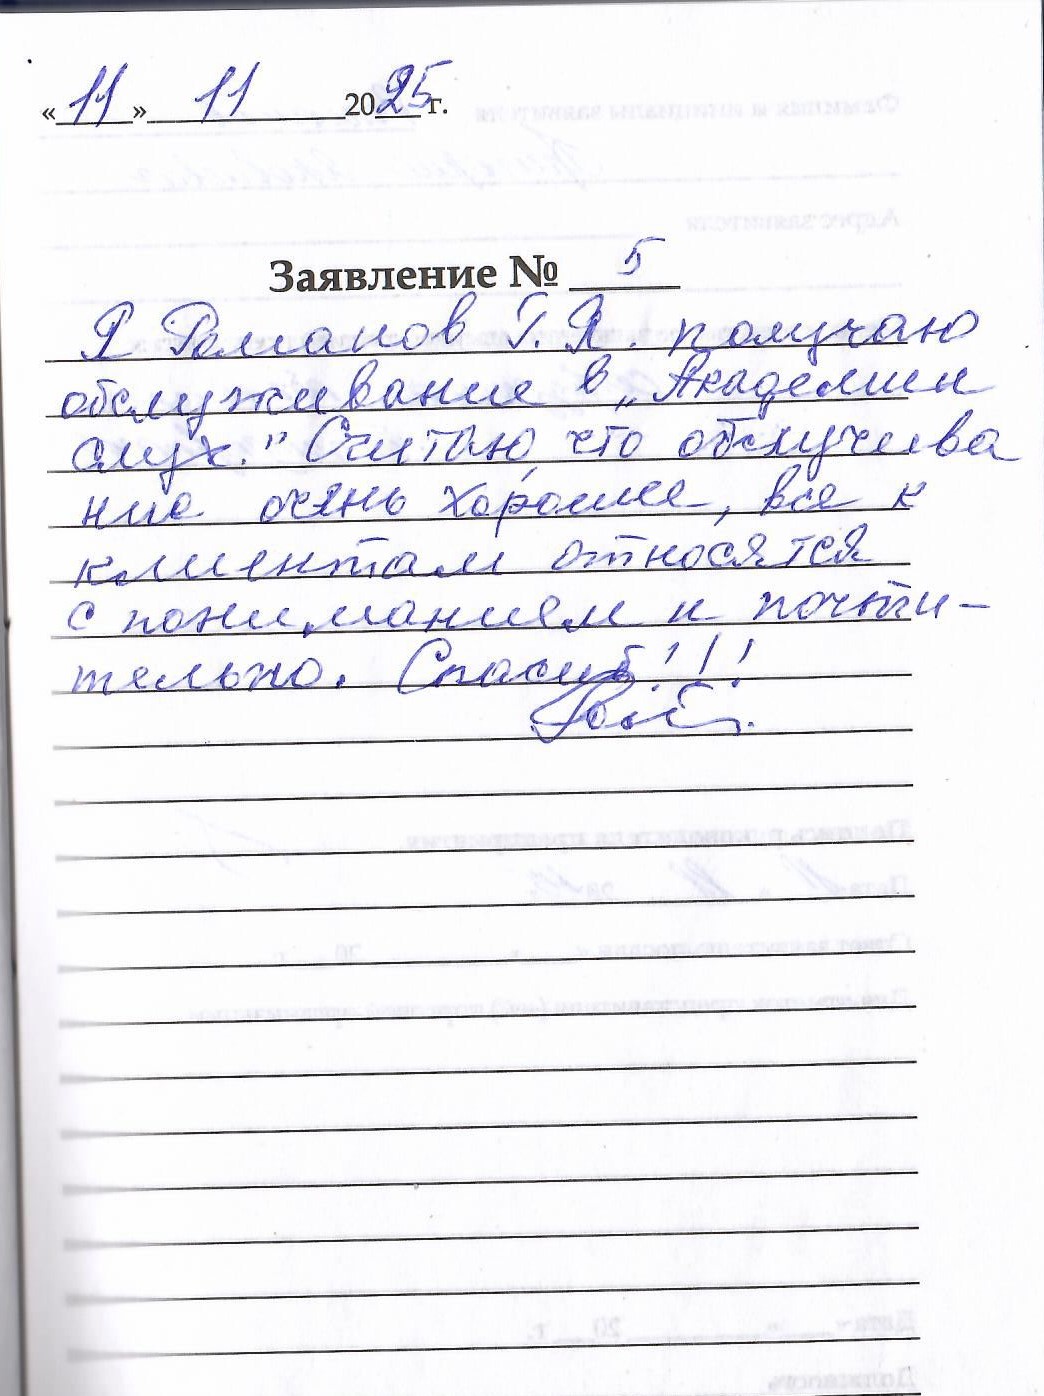 «11» 11 2025 г.
Заявление № 5
Я Романов Г. Я. получаю
обслуживание в „Академии
слух." Считаю, что обслучива
ние очень хорошее, все к
клиентам относятся
с пониманием и почти-
тельно. Спасиб!!!